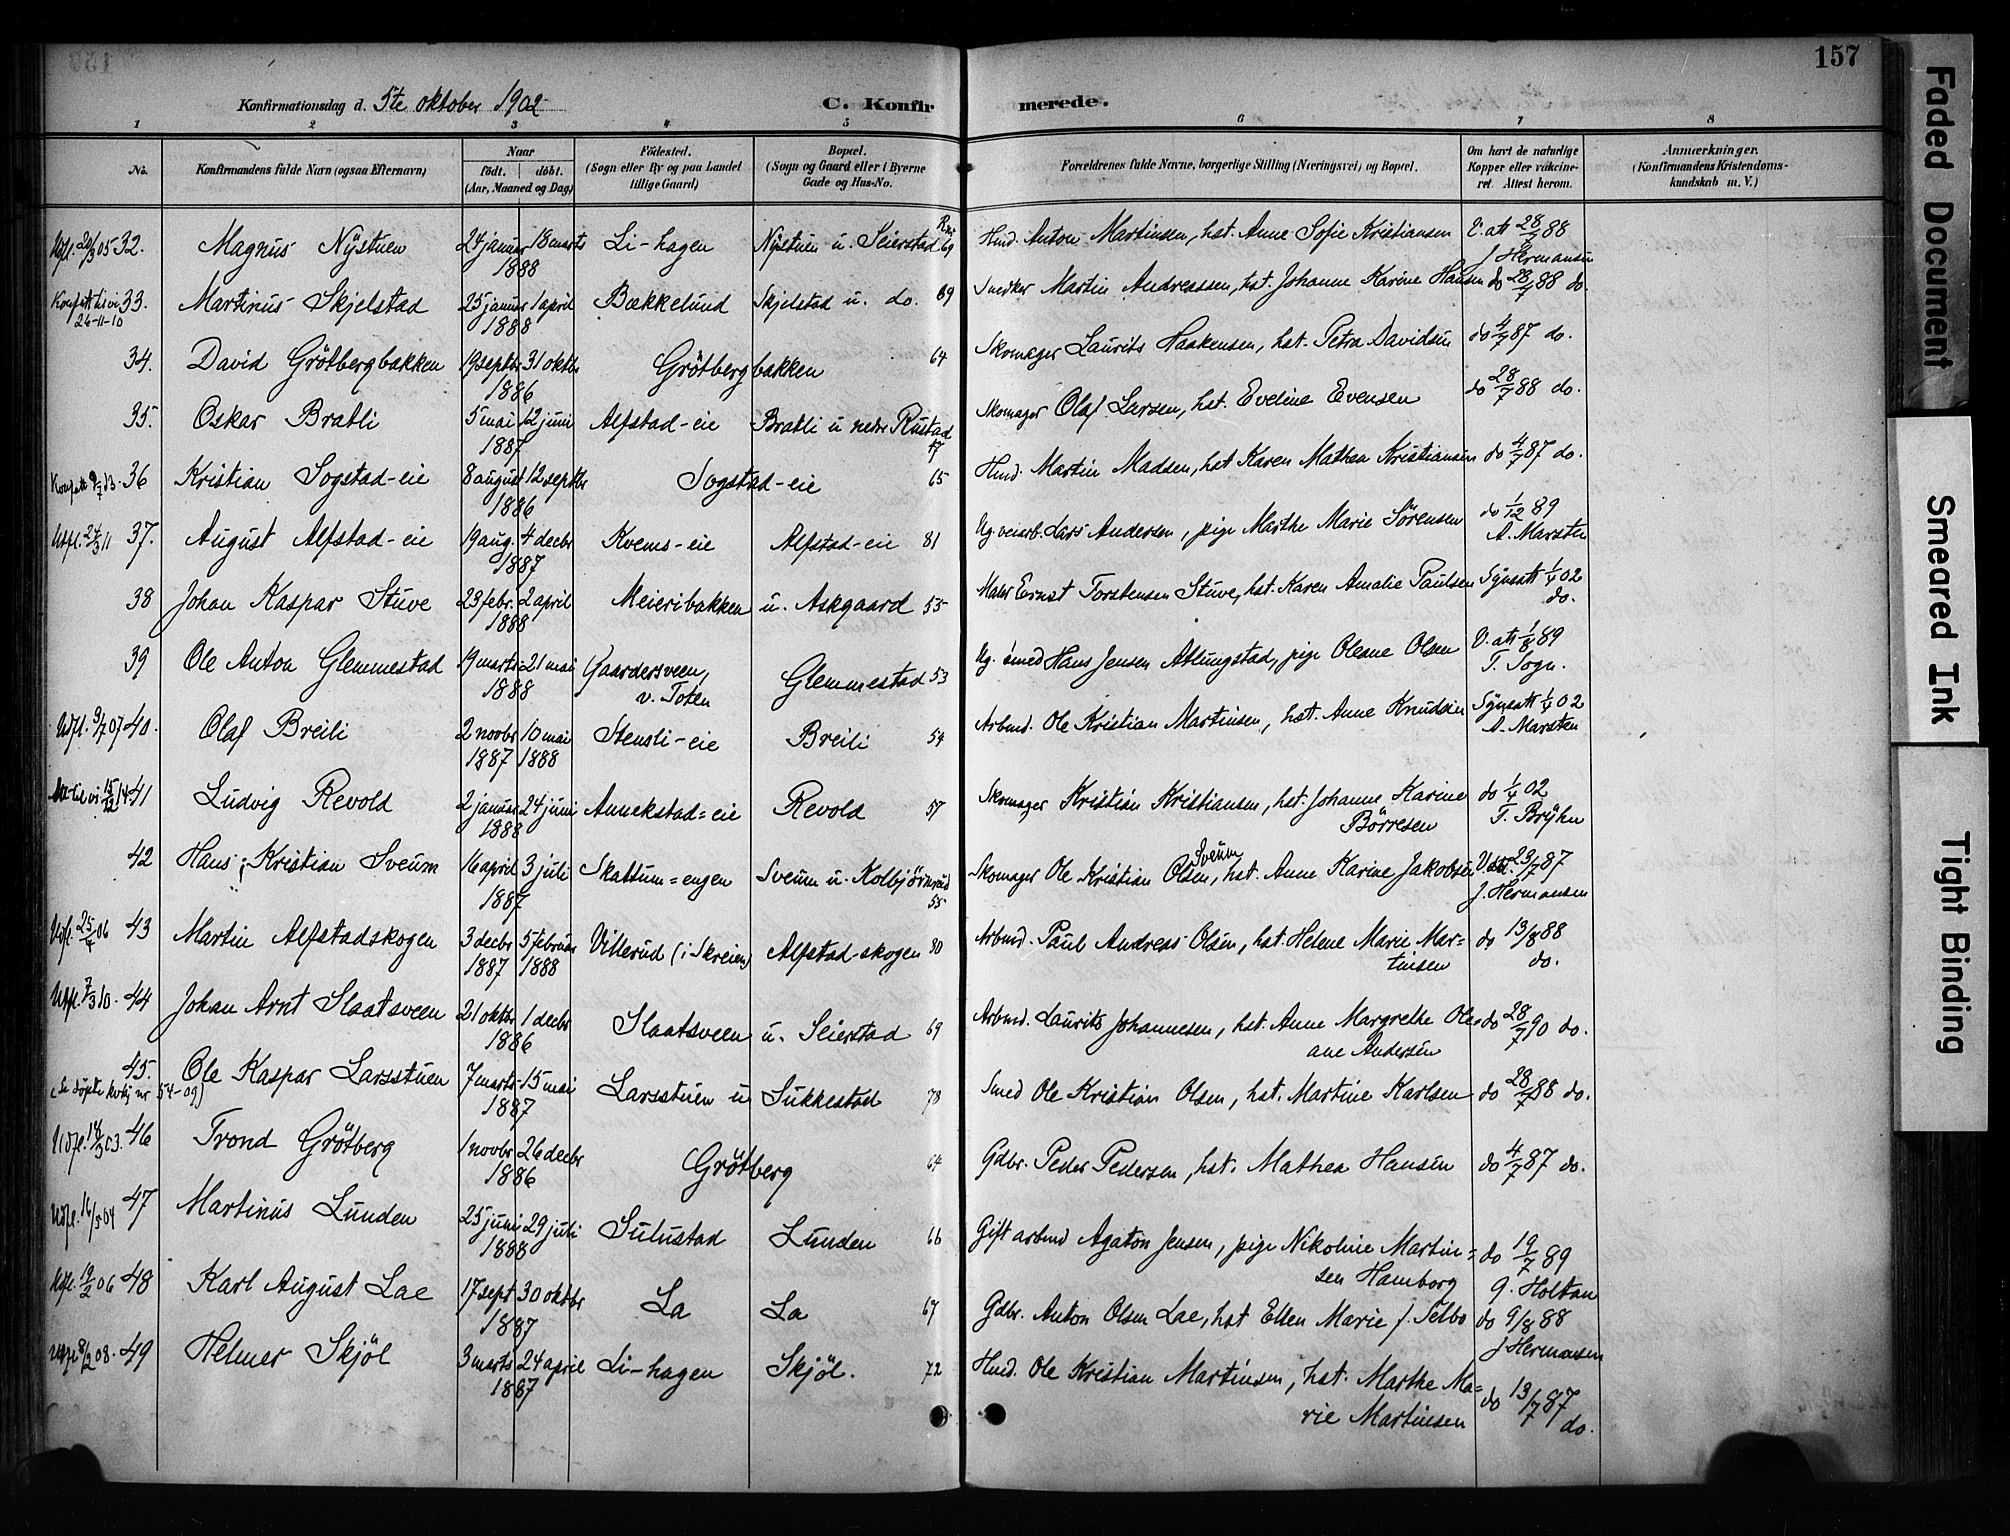 157
Konfirmationsdag d. 5te oktober 1902
C. Konfirmerede.
1 2 3 4 5 6 7 8
No. Konfirmandens fulde Navn (ogsaa Efternavn) Naar født. døbt. (Aar, Maaned og Dag) Fødested. (Sogn eller By og paa Landet tillige Gaard) Bopæl. (Sogn og Gaard eller i Byerne Gade og Hus-No. Forældrenes fulde Navne, borgerlige Stilling (Næringsvei) og Bopæl. Om havt de naturlige Kopper eller vakcineret. Attest herom. Anmærkninger. (Konfirmandens Kristendomskundskab m. V.)
Udfl. 20/3 05 32. Magnus Nÿstuen 24 januar 18 marts 1888 Li-hagen Nÿstuen u. Seierstad 69 Hmd. Anton Martinsen, hst. Anne Sofie Kristiansen V. att 28/7 88 J Hermansen
26-11-10 33. Martinus Skjelstad 25 januar 1 april 1888 Bækkelund Skjelstad u. do. 69 Snedker Martin Andreassen, hst. Johanne Karine Hansen do 28/7 88 do.
34. David Grötbergbakken 19 septbr. 31 oktbr 1886 Grötbergbakken 64 Skomager Laurits Haakensen, hst. Petra Davidsen do 4/7 87 do.
35. Oskar Bratli 5 mai 12 juni 1887 Alfstad-eie Bratli u nedre Rustad 47 Skomager Olaf Larsen, hst. Eveline Evensen do 28/7 88 do.
36 Kristian Sogstad-eie 8 august 12 septbr 1886 Sogstad-eie 65 Hmd. Martin Madsen, hst Karen Mathea Kristiansen do 4/7 87 do.
Udfl. 24/3 11 37. August Alfstad-eie 19 aug. 4 decbr 1887 Kvems-eie Alfstad-eie 81 Ug. veiarb. Lars Andersen, pige Marthe Marie Sörensen do 1/12 89 A. Marsten
38 Johan Kaspar Stuve 23 febr. 2 april 1888 Meieribakken u. Askgaard 55 Maler Ernst Torstensen Stuve, hst. Karen Amalie Paulsen Sÿnsatt 1/4 02 do.
39 Ole Anton Glemmestad 19 marts 21 mai 1888 Gaardersveen, v. Toten Glemmestad 53 Ug. smed Hans Jensen Atlungstad, pige Oleane Olsen V. att 1/8 89 T. Sogn.
Udfl. 3/7 07 40. Olaf Breili 2 novbr 1887 10 mai 1888 Stensli-eie Breili 54 Arbmd. Ole Kristian Martinsen, hst. Anne Knudsen Sÿnsatt 1/4 02 A. Marsten
15/12 14 41 Ludvig Revold 2 januar 24 juni 1888 Annekstad-eie Revold 57 Skomager Kristian Kristiansen, hst. Johanne Karine Börresen do 1/4 02 T. Brÿhn
42 Hans Kristian Sveum 16 april 3 juli 1887 Skattum-engen Sveum u. Kolbjörnrud 55 Skomager Ole Kristian Olsen Sveum, hst. Anne Karine Jakobsen V. att. 23/7 87 J. Hermansen
Udfl. 25/4 06 43 Martin Alfstadskogen 3 decbr 1887 5 februar 1888 Villerud (i Skreien) Alfstad-skogen 80 Arbmd. Paul Andreas Olsen, hst. Helene Marie Mar=tinsen do 13/8 88 do.
Udfl. 7/3 10. 44 Johan Arnt Slaatsveen 21 oktbr 1 decbr 1886 Slaatsveen u. Seierstad 69 Arbmd. Laurits Johannesen, hst. Anne Margrethe Ole=ane Andersen do 28/7 90 do.
45. Ole Kaspar Larsstuen 7 marts 15 mai 1887 Larsstuen u Sukkestad 78 Smed Ole Kristian Olsen, hst. Martine Karlsen do 28/7 88 do.
Udfl. 18/3 03. 46 Trond Grötberg 1 novbr 26 decbr 1886 Grötberg 64 Gdbr. Peder Pedersen, hst. Mathea Hansen do 4/7 87 do.
Udfl. 16/5 04 47 Martinus Lunden 25 juni 29 juli 1888 Sulustad Lunden 66 Gift arbmd Agaton Jensen, pige Nikoline Martin=sen Hamborg do 19/7 89 G. Holtan
Udfl. 19/2 06 48 Karl August Lae 17 sept 30 oktbr 1887 La La 67 Gdbr. Anton Olsen Lae, hst Ellen Marie f. Selbo do 9/8 88 J Hermansen
Udfl 8/2 08. 49 Helmer Skjöl 3 marts 24 april 1887 Li-hagen Skjöl. 72 Hmd. Ole Kristian Martinsen, hst. Marthe Ma=rie Martinsen do 13/7 87 do.
Faded Document
Smeared Ink
Tight Binding